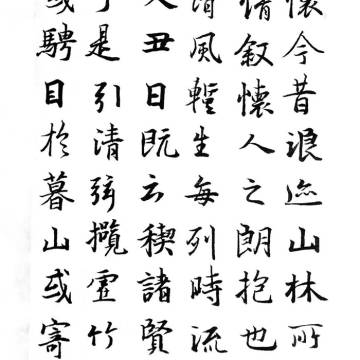 懷今昔浪迹山林所
情敘懷人之朗抱也
清風輕生每列時流
丑日既云稧諸賢
于是引清弦攬虛竹
或騁目於暮山或寄